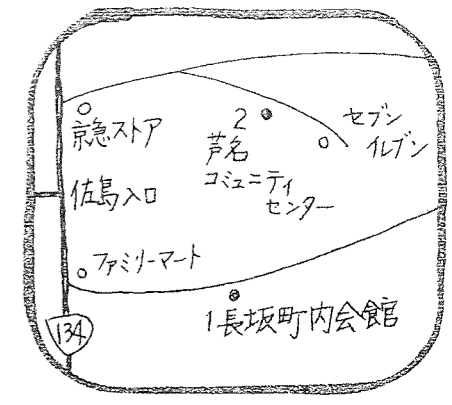 京急ストア
2
芦名
コミュニティ
センター
セブン
イレブン
佐島入口
ファミリーマート
1 長坂町内会館
134